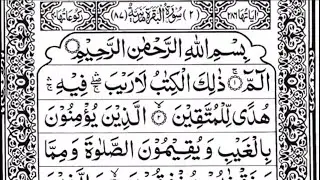 اٰیاتها ٢٨٦ (٢) سُوْرَةُ الْبَقَرَةِ مَدَنِيَّةٌ (٨٧) رکوعاتها
بِسْمِ اللّٰهِ الرَّحْمٰنِ الرَّحِيْمِ
الٓمّٓ ۚ﴿١﴾ ذٰلِكَ الْكِتٰبُ لَا رَيْبَ ۛۚ فِيْهِ ۛۚ
هُدًى لِّلْمُتَّقِيْنَ ۙ﴿٢﴾ الَّذِيْنَ يُؤْمِنُوْنَ
بِالْغَيْبِ وَ يُقِيْمُوْنَ الصَّلٰوةَ وَ مِمَّا